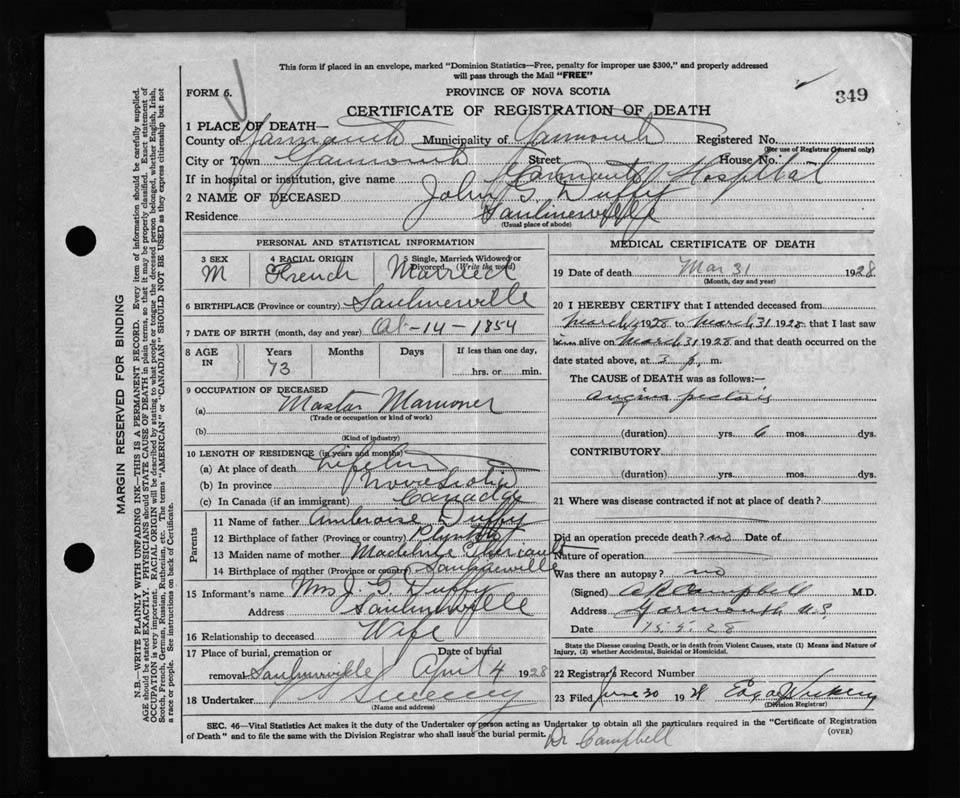 This form if placed in an envelope, marked "Dominion Statistics—Free, penalty for improper use $300," and properly addressed
will pass through the Mail "FREE"
FORM 6.
PROVINCE OF NOVA SCOTIA
349
CERTIFICATE OF REGISTRATION OF DEATH
1 PLACE OF DEATH—
County of Yarmouth Municipality of Yarmouth Registered No.
(For use of Registrar General only)
City or Town Yarmouth Street House No.
If in hospital or institution, give name Yarmouth Hospital
2 NAME OF DECEASED John G. Duffy
Residence Saulnierville
(Usual place of abode)
PERSONAL AND STATISTICAL INFORMATION
3 SEX 4 RACIAL ORIGIN 5 Single, Married, Widowed or Divorced. (Write the word)
M French Married
6 BIRTHPLACE (Province or country) Saulnierville
7 DATE OF BIRTH (month, day and year) Oct-14-1854
8 AGE IN Years Months Days If less than one day,
73 hrs. or min.
9 OCCUPATION OF DECEASED
(a) Master Marioner
(Trade or occupation or kind of work)
(b)
(Kind of industry)
10 LENGTH OF RESIDENCE (in years and months)
(a) At place of death
(b) In province Nova Scotia
(c) In Canada (if an immigrant) Canada
Parents
11 Name of father Ambroise Duffy
12 Birthplace of father (Province or country)
13 Maiden name of mother Madeline
14 Birthplace of mother (Province or country) Saulnierville
15 Informant's name Mrs J. G. Duffy
Address Saulnierville
16 Relationship to deceased Wife
17 Place of burial, cremation or Date of burial
removal Saulnierville April 4 1928
18 Undertaker Sweeny
(Name and address)
MEDICAL CERTIFICATE OF DEATH
19 Date of death Mar 31 1928
(Month, day and year)
20 I HEREBY CERTIFY that I attended deceased from
March 1928 to March 31 1928 that I last saw
him alive on March 31 1928 and that death occurred on the
date stated above, at p. m.
The CAUSE of DEATH was as follows:—
angina pectoris
(duration) yrs. 6 mos. dys.
CONTRIBUTORY
(duration) yrs. mos. dys.
21 Where was disease contracted if not at place of death?
Did an operation precede death? no Date of
Nature of operation
Was there an autopsy? no
(Signed) Campbell M.D.
Address Yarmouth N.S.
Date 15.5.28
State the Disease causing Death, or in death from Violent Causes, state (1) Means and Nature of
Injury, (2) whether Accidental, Suicidal or Homicidal.
22 Registrar's Record Number
23 Filed June 30 1928
(Division Registrar)
SEC. 46—Vital Statistics Act makes it the duty of the Undertaker or person acting as Undertaker to obtain all the particulars required in the "Certificate of Registration
of Death" and to file the same with the Division Registrar who shall issue the burial permit.
(OVER)
Dr Campbell
MARGIN RESERVED FOR BINDING
N.B.—WRITE PLAINLY WITH UNFADING INK—THIS IS A PERMANENT RECORD. Every item of information should be carefully supplied.
AGE should be stated EXACTLY. PHYSICIANS should STATE CAUSE OF DEATH in plain terms, so that it may be properly classified. Exact statement of
OCCUPATION is very important. RACIAL ORIGIN will be described by stating to what people or tongue the deceased person belonged, whether English, Irish,
Scotch, French, German, Russian, Ruthenian, etc. The terms "AMERICAN" or "CANADIAN" SHOULD NOT BE USED as they express citizenship but not
a race or people. See instructions on back of Certificate.